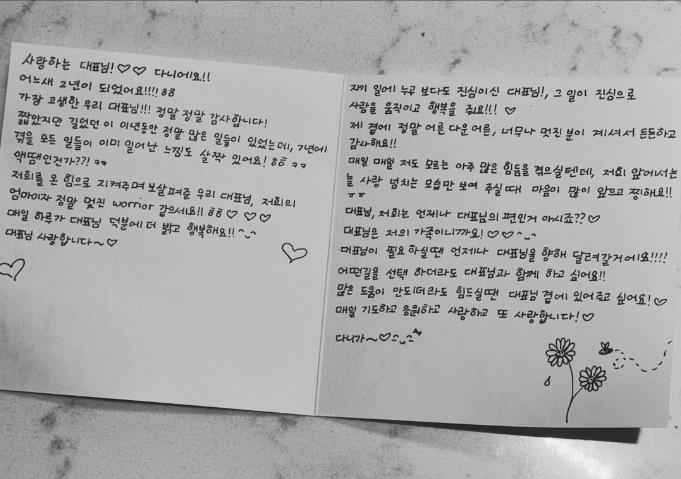 사랑하는 대표님! ♡♡ 다니에요!!
어느새 2년이 되었어요!!!! ㅎㅎ
가장 고생한 우리 대표님!!! 정말 정말 감사합니다!
짧았지만 길었던 이 이년동안 정말 많은 일들이 있었는데, 7년에
겪을 모든 일들이 이미 일어난 느낌도 살짝 있어요! ㅎㅎ ㅋㅋ
액땜인건가??! ㅋㅋ
저희를 온 힘으로 지켜주며 보살펴준 우리 대표님, 저희의
엄마이자 정말 멋진 worrior 같으세요!! ㅎㅎ♡ ♡♡
매일 하루가 대표님 덕분에 더 밝고 행복해요!! ^_^
대표님 사랑합니다~♡
자기 일에 누구 보다도 진심이신 대표님!, 그 일이 진심으로
사람을 움직이고 행복을 줘요!!! ♡
제 곁에 정말 어른 다운 어른, 너무나 멋진 분이 계셔서 든든하고
감사해요!!
매일 매일 저도 모르는 아주 많은 힘듦을 겪으실텐데, 저희 앞에서는
늘 사랑 넘치는 모습만 보여 주실때 마음이 많이 아프고 찡해요!!
ㅠㅠ
대표님, 저희는 언제나 대표님의 편인거 아시죠?? ♡
대표님은 저의 가족이니까요! ♡♡^_^
대표님이 필요하실땐 언제나 대표님을 향해 달려갈거에요!!!!
어떤길을 선택 하더라도 대표님과 함께 하고 싶어요!!
많은 도움이 안되더라도 힘드실땐 대표님 곁에 있어주고 싶어요! ♡
매일 기도하고 응원하고 사랑하고 또 사랑합니다! ♡
다니가~♡^_^